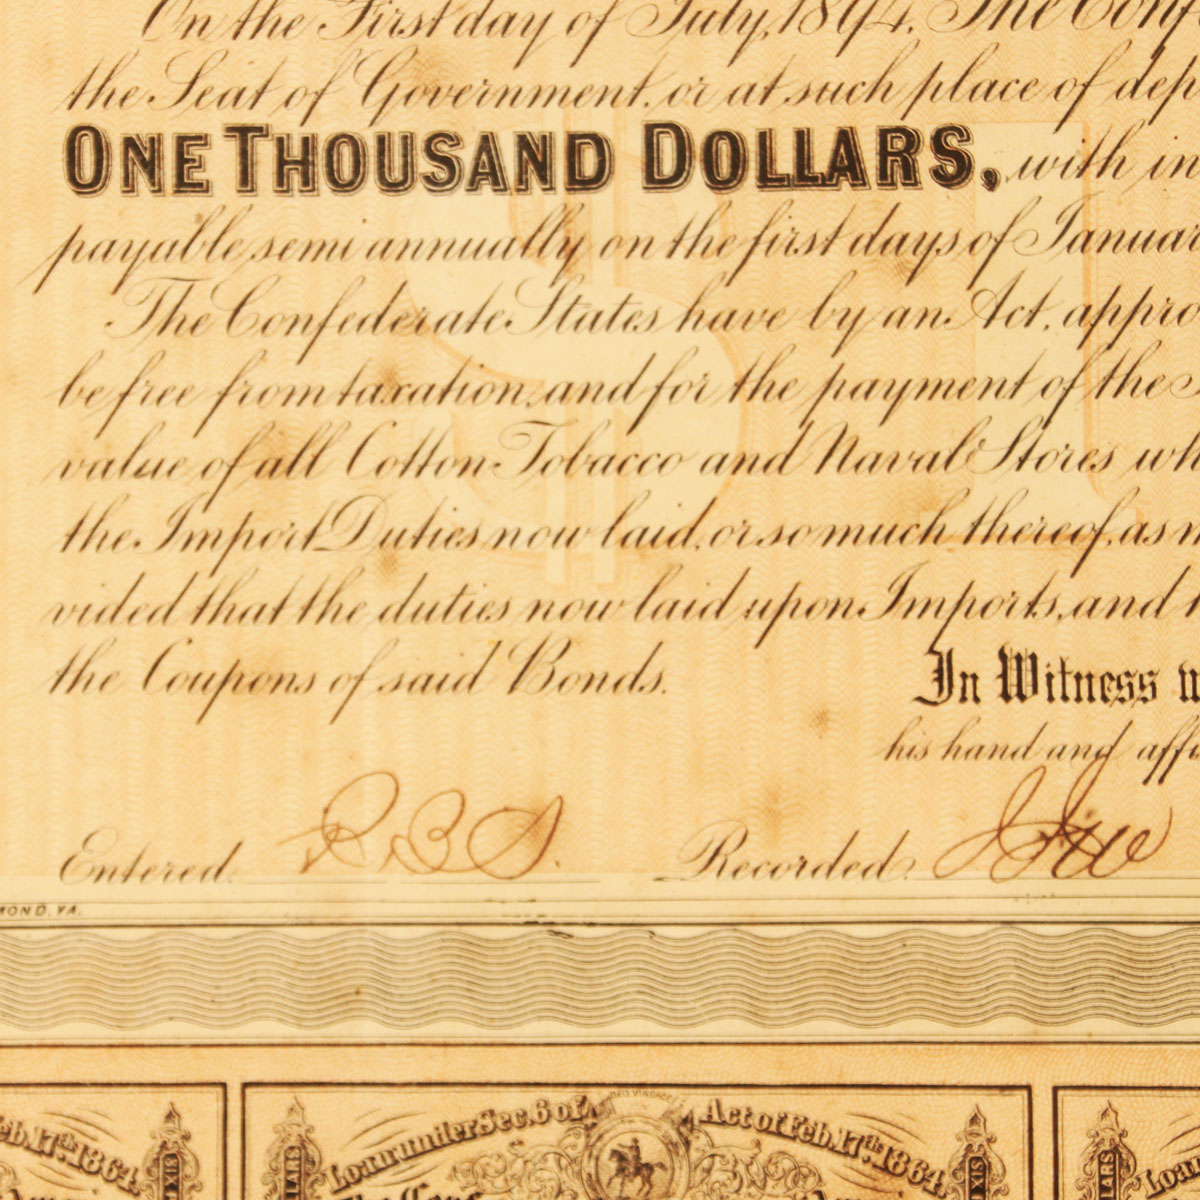 On the First day of July, 1894, The Conf
the Seat of Government, or at such place of dep
ONE THOUSAND DOLLARS, with in
payable semi annually on the first days of Januar
The Confederate States have by an Act, appro
be free from taxation, and for the payment of the
value of all Cotton Tobacco and Naval Stores wh
the Import Duties now laid, or so much thereof, as
vided that the duties now laid upon Imports, and
the Coupons of said Bonds.
In Witness w
his hand and affi
Entered. RBS. Recorded.
MOND, VA.
$1
eb. 17th 1864. Loan under Sec. 6 of Act of Feb. 17th 1864. Loan
LARS SIX LARS